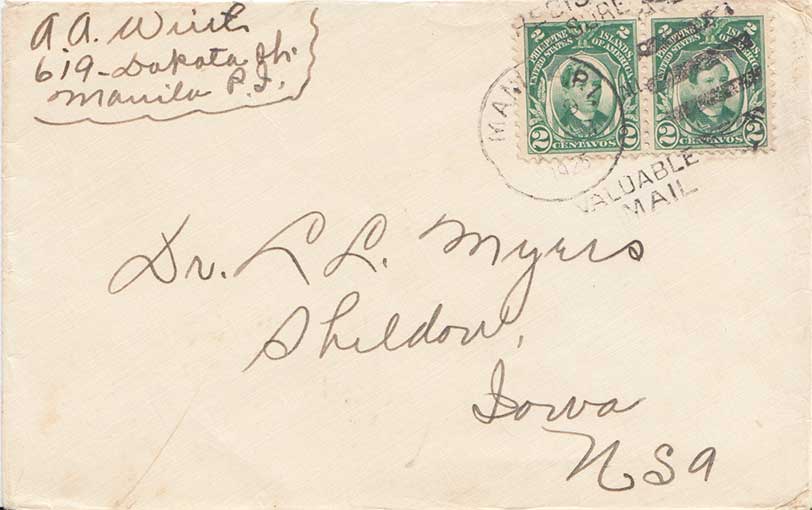 A. A. Wirth
619 - Dakota St.
Manila P.I.
REGIS
SURE
2 PHILIPPINE ISLANDS 2
UNITED STATES OF AMERICA
2 CENTAVOS 2
2 PHILIPPINE ISLANDS 2
UNITED STATES OF AMERICA
2 CENTAVOS 2
MANI P.I.
1925
ALL
VALUABLE
MAIL
Dr. L L. Myers
Sheldon,
Iowa
USA